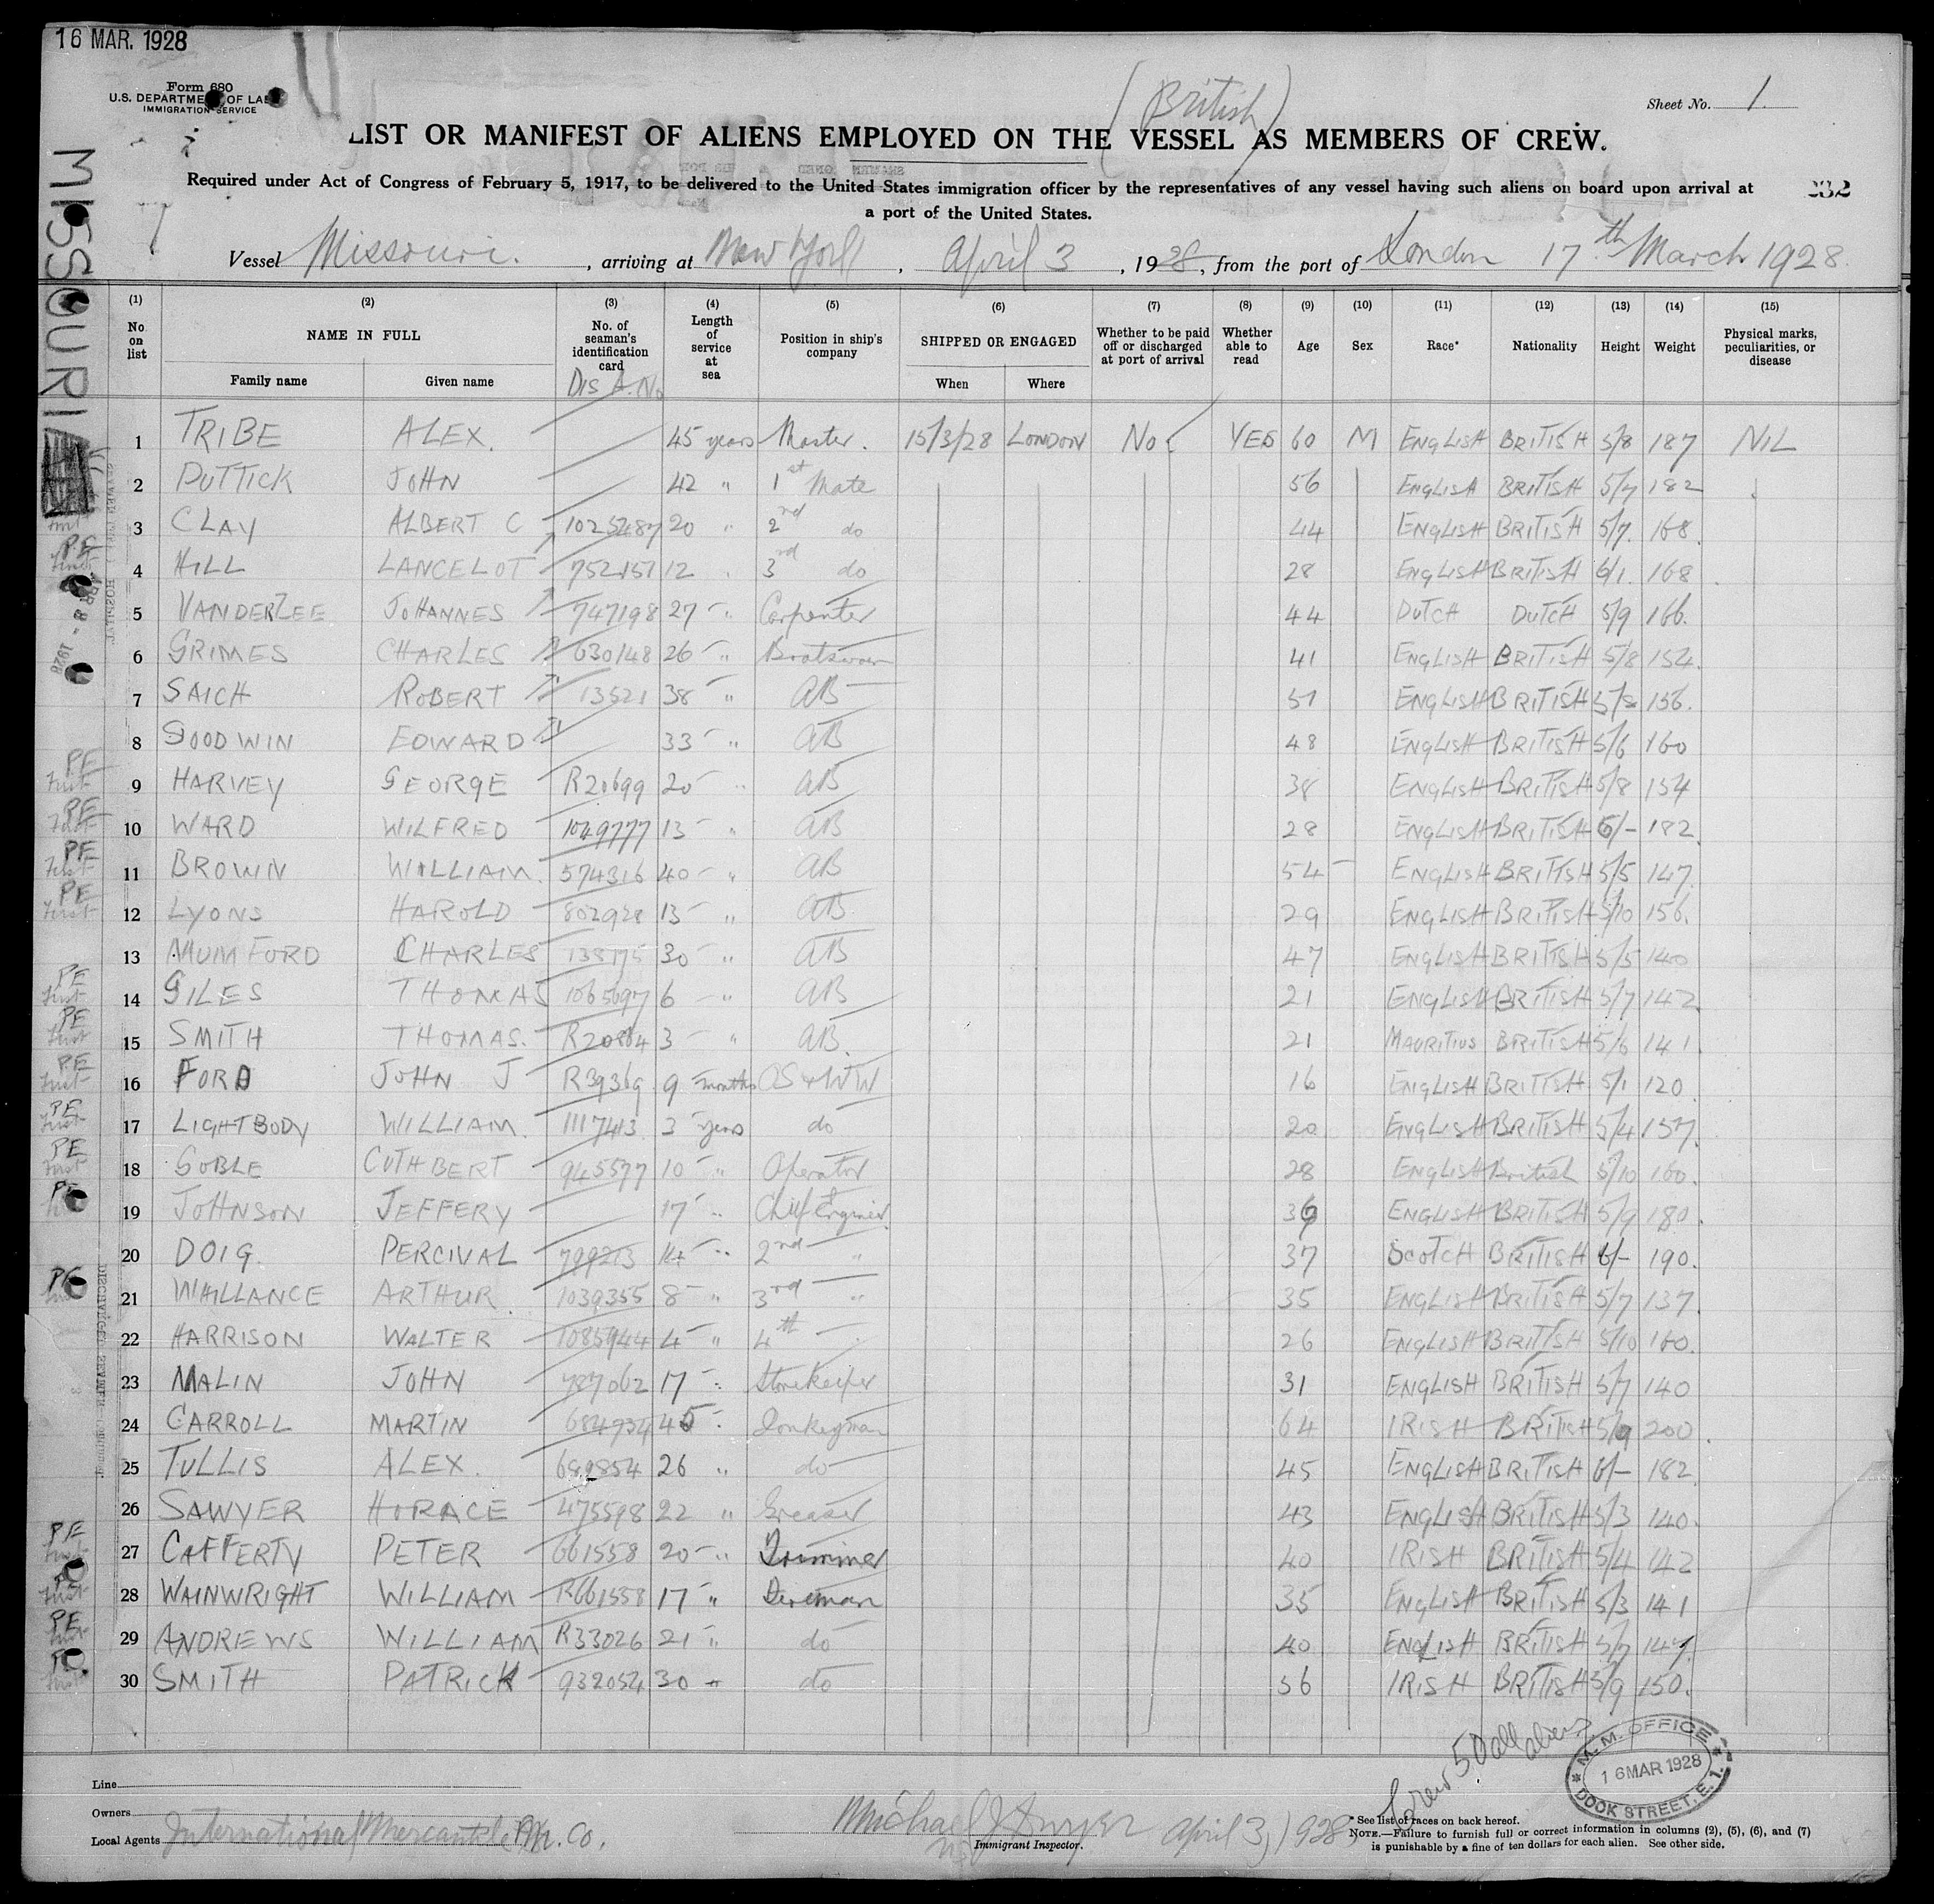 16 MAR. 1928
Form 680
U.S. DEPARTMENT OF LABOR
IMMIGRATION SERVICE
(British)
Sheet No. 1.
LIST OR MANIFEST OF ALIENS EMPLOYED ON THE VESSEL AS MEMBERS OF CREW.
Required under Act of Congress of February 5, 1917, to be delivered to the United States immigration officer by the representatives of any vessel having such aliens on board upon arrival at
a port of the United States.
232
MISSOURI
Vessel Missouri. , arriving at New York , April 3 , 1928 , from the port of London 17th March 1928.
(1) (2) (3) (4) (5) (6) (7) (8) (9) (10) (11) (12) (13) (14) (15)
No on list NAME IN FULL No. of seaman's identification card Length of service at sea Position in ship's company SHIPPED OR ENGAGED Whether to be paid off or discharged at port of arrival Whether able to read Age Sex Race* Nationality Height Weight Physical marks, peculiarities, or disease
Family name Given name Dis A. No When Where
1 TRIBE ALEX. 45 years Master. 15/3/28 LONDON No YES 60 M ENGLISH BRITISH 5/8 187 NIL
2 PUTTICK JOHN 42 " 1st Mate 56 ENGLISH BRITISH 5/7 182
3 CLAY ALBERT C 1025287 20 " 2nd do 44 ENGLISH BRITISH 5/7. 168
4 HILL LANCELOT 752151 12 " 3rd do 28 ENGLISH BRITISH 6/1. 168
5 VANDERZEE JOHANNES 747198 27 " Carpenter 44 DUTCH DUTCH 5/9 166.
6 GRIMES CHARLES 630148 26 " Boatswain 41 ENGLISH BRITISH 5/8 154.
7 SAICH ROBERT 13521 38 " AB 51 ENGLISH BRITISH 5/8 156.
8 GOODWIN EDWARD 33 " AB 48 ENGLISH BRITISH 5/6 160
9 HARVEY GEORGE R20699 20 " AB 38 ENGLISH BRITISH 5/8 154
10 WARD WILFRED 1049777 13 " AB 28 ENGLISH BRITISH 6/- 182
11 BROWN WILLIAM. 574316 40 " AB 54 ENGLISH BRITISH 5/5 147
12 LYONS HAROLD 802928 13 " AB 29 ENGLISH BRITISH 5/10 156.
13 MUMFORD CHARLES 138175 30 " AB 47 ENGLISH BRITISH 5/5 140
14 GILES THOMAS 1065697 6 " AB 21 ENGLISH BRITISH 5/7 142
15 SMITH THOMAS. R20864 3 " AB. 21 MAURITIUS BRITISH 5/6 141
16 FORD JOHN J R39369 9 months OS & WW 16 ENGLISH BRITISH 5/1 120
17 LIGHTBODY WILLIAM. 1117413 3 years do 20 ENGLISH BRITISH 5/4 157.
18 GOBLE CUTHBERT 945577 10 " Operator 28 ENGLISH British 5/10 160.
19 JOHNSON JEFFERY 17 " Chief Engineer 39 ENGLISH BRITISH 5/9 180
20 DOIG. PERCIVAL 799213 14 " 2nd " 37 SCOTCH BRITISH 6/- 190.
21 WHILLANCE ARTHUR. 1039355 8 " 3rd " 35 ENGLISH BRITISH 5/7 137
22 HARRISON WALTER 1085944 4 " 4th " 26 ENGLISH BRITISH 5/10 160.
23 MALIN JOHN 787062 17 " Storekeeper 31 ENGLISH BRITISH 5/7 140
24 CARROLL MARTIN 684734 45 " Donkeyman 64 IRISH BRITISH 5/9 200.
25 TULLIS ALEX. 689854 26 " do 45 ENGLISH BRITISH 6/- 182
26 SAWYER HORACE 475598 22 " Greaser 43 ENGLISH BRITISH 5/3 140.
27 CAFFERTY PETER 661558 20 " Trimmer 40 IRISH BRITISH 5/4 142
28 WAINWRIGHT WILLIAM R661558 17 " Fireman 35 ENGLISH BRITISH 5/3 141
29 ANDREWS WILLIAM R33026 21 " do 40 ENGLISH BRITISH 5/7 147.
30 SMITH PATRICK 932054 30 " do 56 IRISH BRITISH 5/9 150.
Crew 50 all aliens
M. M. OFFICE
16 MAR 1928
DOCK STREET, E. 1.
Line
Owners
Local Agents International Mercantile M. Co.
April 3, 1928
Immigrant Inspector.
* See list of races on back hereof.
NOTE.—Failure to furnish full or correct information in columns (2), (5), (6), and (7)
is punishable by a fine of ten dollars for each alien. See other side.